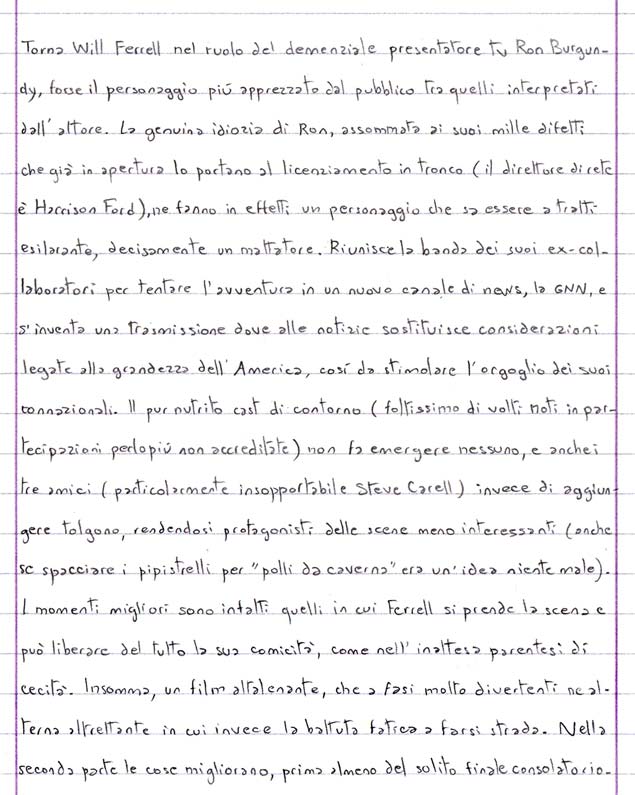 Torna Will Ferrell nel ruolo del demenziale presentatore tv Ron Burgun-
dy, forse il personaggio più apprezzato dal pubblico tra quelli interpretati
dall'attore. La genuina idiozia di Ron, assommata ai suoi mille difetti
che già in apertura lo portano al licenziamento in tronco (il direttore di rete
è Harrison Ford), ne fanno in effetti un personaggio che sa essere a tratti
esilarante, decisamente un mattatore. Riunisce la banda dei suoi ex-col-
laboratori per tentare l'avventura in un nuovo canale di news, la GNN, e
s'inventa una trasmissione dove alle notizie sostituisce considerazioni
legate alla grandezza dell'America, così da stimolare l'orgoglio dei suoi
connazionali. Il pur nutrito cast di contorno (foltissimo di volti noti in par-
tecipazioni perlopiù non accreditate) non fa emergere nessuno, e anche i
tre amici (particolarmente insopportabile Steve Carell) invece di aggiun-
gere tolgono, rendendosi protagonisti delle scene meno interessanti (anche
se spacciare i pipistrelli per "polli da caverna" era un'idea niente male).
I momenti migliori sono infatti quelli in cui Ferrell si prende la scena e
può liberare del tutto la sua comicità, come nell'inattesa parentesi di
cecità. Insomma, un film altalenante, che a fasi molto divertenti ne al-
terna altrettante in cui invece la battuta fatica a farsi strada. Nella
seconda parte le cose migliorano, prima almeno del solito finale consolatorio.